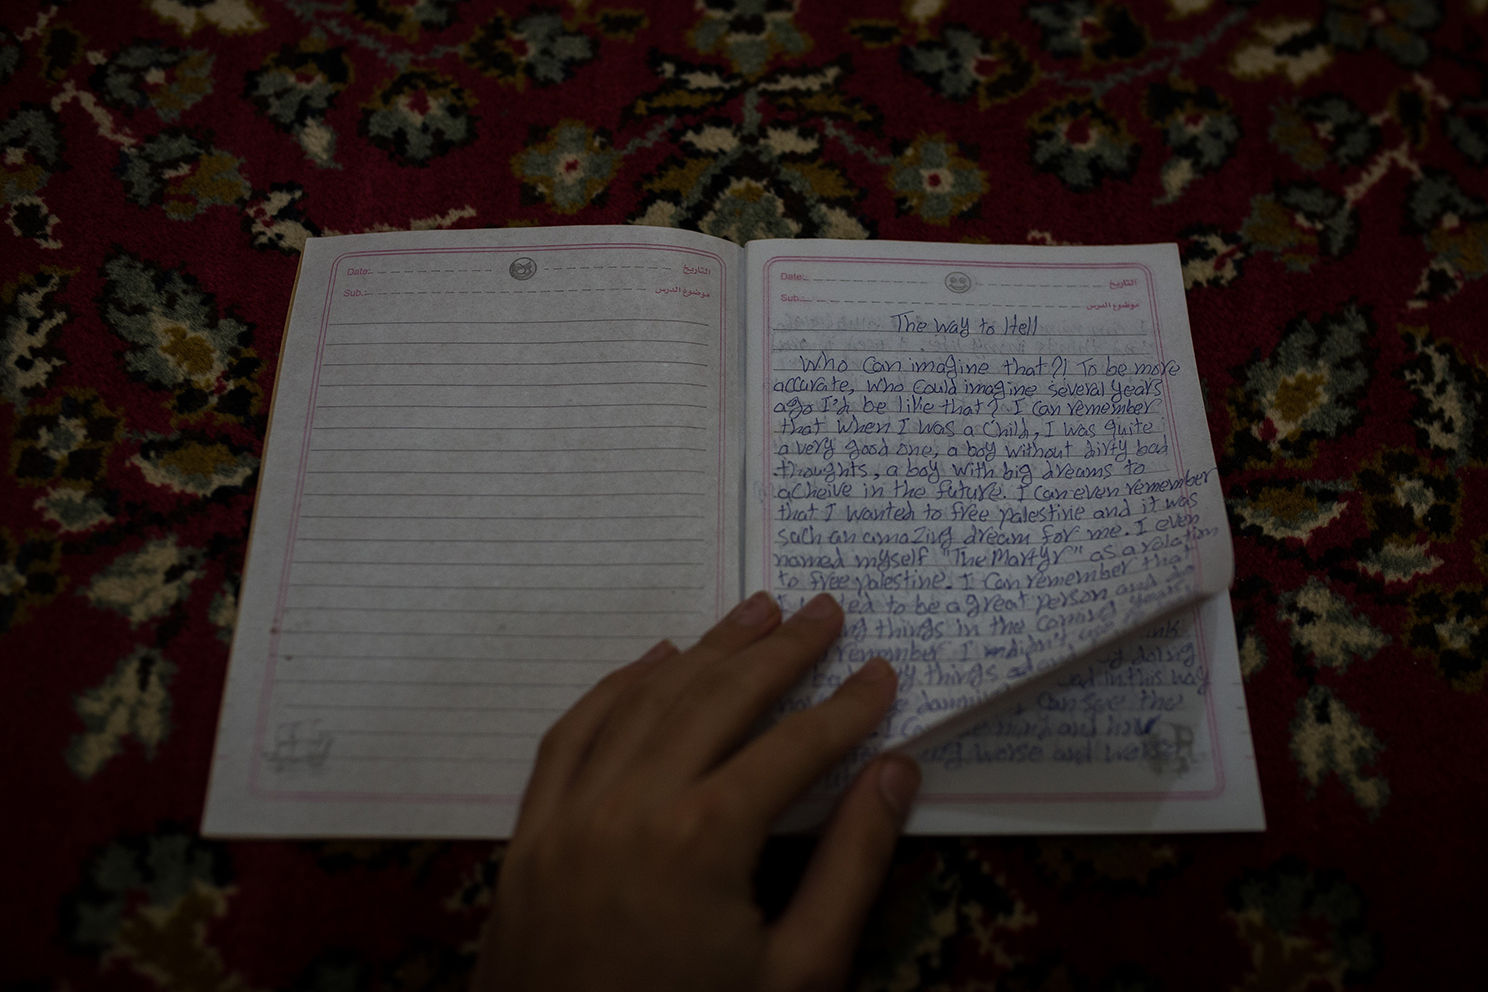 Date:
التاريخ
Sub.:
موضوع الدرس
Date:
التاريخ
Sub.:
موضوع الدرس
The way to Hell
Who can imagine that?! To be more
accurate, who could imagine several years
ago I'd be like that? I can remember
that when I was a child, I was quite
a very good one, a boy without dirty bad
thoughts, a boy with big dreams to
acheive in the future. I can even remember
that I wanted to free palestine and it was
such an amazing dream for me. I even
named myself "The Martyr" as a relation
to free palestine. I can remember that
to be a great person and do
things in the coming years
remember I
things
in this way
I can see the
I can and
worse and